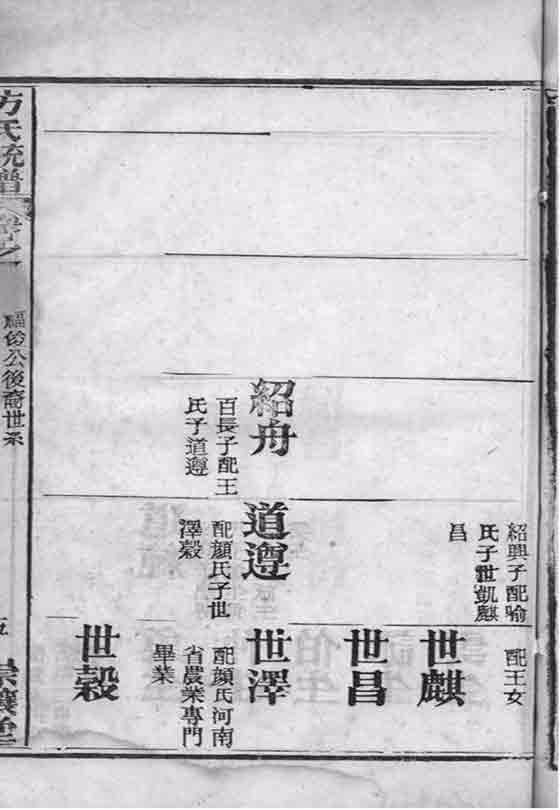 紹舟
百長子配王
氏子道遵
紹興子配喻
氏子世凱麒
昌
道遵
配顏氏子世
澤穀
配王女
世麒
世昌
世澤
配顏氏河南
省農業專門
畢業
世穀
方氏統譜
福俊公後裔世系
五